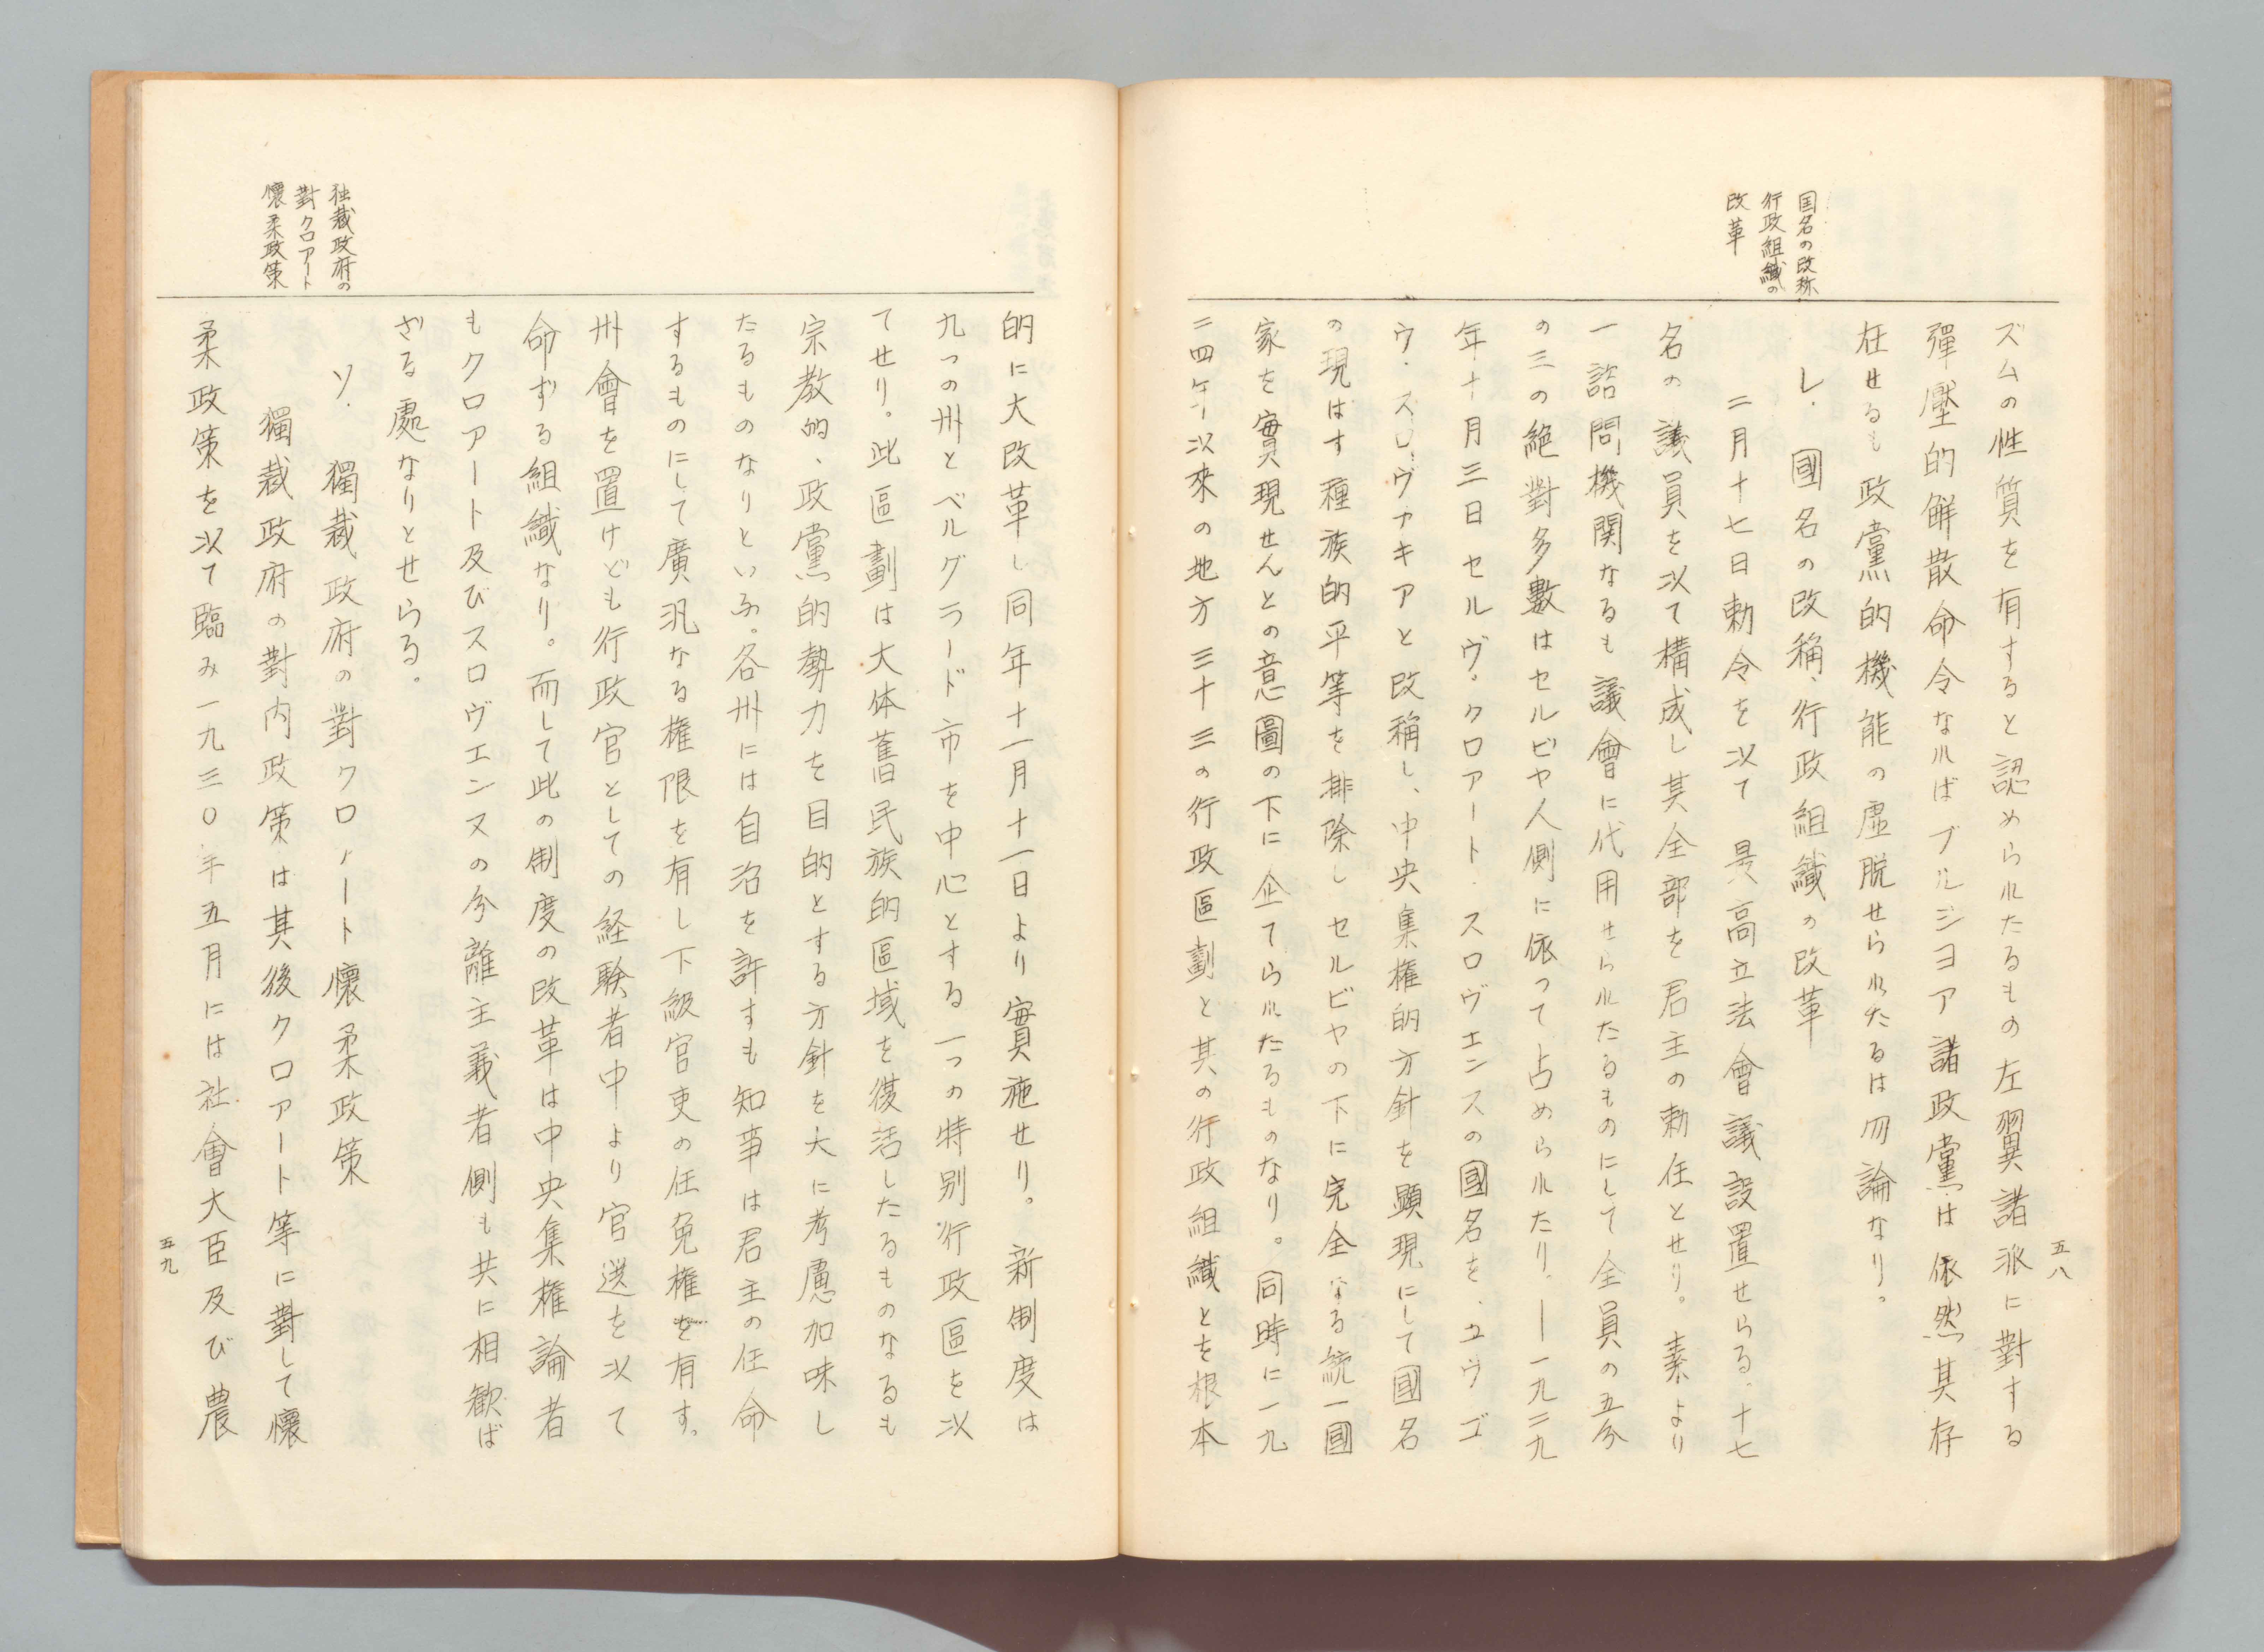 国名の改称
行政組織の
改革
五八
ズムの性質を有すると認められたるもの左翼諸派に對する
彈壓的解散命令なればブルジヨア諸政黨は依然其存
在せるも政黨的機能の虚脱せられたるは勿論なり。
レ．國名の改稱、行政組織の改革
二月十七日勅令を以て最高立法會議設置せらる．十七
名の議員を以て構成し其全部を君主の勅任とせり。素より
一諮問機関なるも議會に代用せられたるものにして全員の五分
の三の絶對多數はセルビヤ人側に依つて占められたり．―一九二九
年十月三日セルヴ．クロアート．スロヴエンスの國名を．ユウゴ
ウ．スロヴァキアと改稱し、中央集権的方針を顕現にして國名
の現はす種族的平等を排除しセルビヤの下に完全なる統一國
家を實現せんとの意圖の下に企てられたるものなり。同時に一九
二四年以來の地方三十三の行政區劃と其の行政組織とを根本
独裁政府の
對クロアート
懷柔政策
的に大改革し同年十一月十一日より實施せり。新制度は
九つの州とベルグラード市を中心とする一つの特別行政區を以
てせり。此區劃は大体舊民族的區域を復活したるものなるも
宗教的、政黨的勢力を目的とする方針を大に考慮加味し
たるものなりといふ。各州には自治を許すも知事は君主の任命
するものにして廣汎なる権限を有し下級官吏の任免権を有す。
州會を置けども行政官としての経験者中より官選を以て
命ずる組織なり。而して此の制度の改革は中央集權論者
もクロアート及びスロヴエンヌの分離主義者側も共に相歓ば
ざる處なりとせらる。
ソ．獨裁政府の對クロアート懷柔政策
獨裁政府の對内政策は其後クロアート等に對して懷
柔政策を以て臨み一九三〇年五月には社會大臣及び農
五九